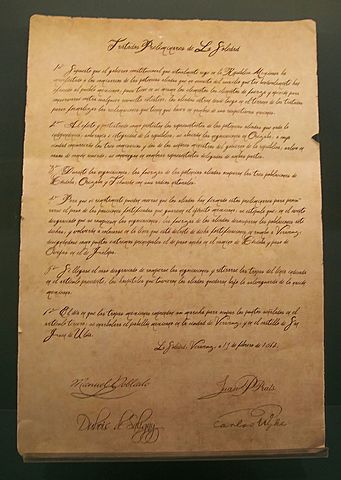 Tratados Preliminares de La Soledad
1º Supuesto que el gobierno constitucional que actualmente rige en la República Mexicana ha
manifestado a los comisarios de las potencias aliadas que no necesita del auxilio que tan bondadosamente han
ofrecido al pueblo mexicano, pues tiene en sí mismo los elementos de fuerza y opinión para
conservarse contra cualquier revuelta intestina, los aliados entran desde luego en el terreno de los tratados
para formalizar las reclamaciones que tienen que hacer en nombre de sus respectivas naciones.
2º Al efecto y protestando como protestan los representantes de las potencias aliadas que nada
independencia, soberanía e integridad de la república, se abrirán las negociaciones en Orizaba, a cuya
ciudad concurrirán los tres comisarios y dos de los señores ministros del gobierno de la república, salvo en
caso de común acuerdo, se convenga en nombrar representantes delegados de ambas partes.
3º Durante las negociaciones, las fuerzas de las potencias aliadas ocuparán las tres poblaciones de
Córdoba, Orizaba y Tehuacán con sus radios naturales.
4º Para que ni remotamente pueda creerse que los aliados han firmado estos preliminares para
el paso de las posiciones fortificadas que guarnece el ejército mexicano, se estipula que, en el evento
desgraciado que se rompiesen las negociaciones, las fuerzas de los aliados desocuparán las poblaciones
dichas, y volverán a colocarse en la línea que está delante de dichas fortificaciones, en rumbo a Veracruz,
designándose como puntos extremos principales el de paso ancho en el camino de Córdoba y paso de
Ovejas en el de Jalapa.
5º Si llegare el caso desgraciado de romperse las negociaciones y retirarse las tropas
en el artículo precedente, los hospitales que tuvieren los aliados quedarán bajo la salvaguardia de la nación
mexicana.
6º El día en que las tropas emprendan su marcha para ocupar los puntos señalados en el
artículo tercero, se enarbolará el pabellón mexicano en la ciudad de Veracruz y en el castillo de San
Juan de Ulúa.
La Soledad, Veracruz, a 19 de febrero de 1862.
Manuel Doblado
Juan Prim
Dubois de Saligny
Carlos Wyke